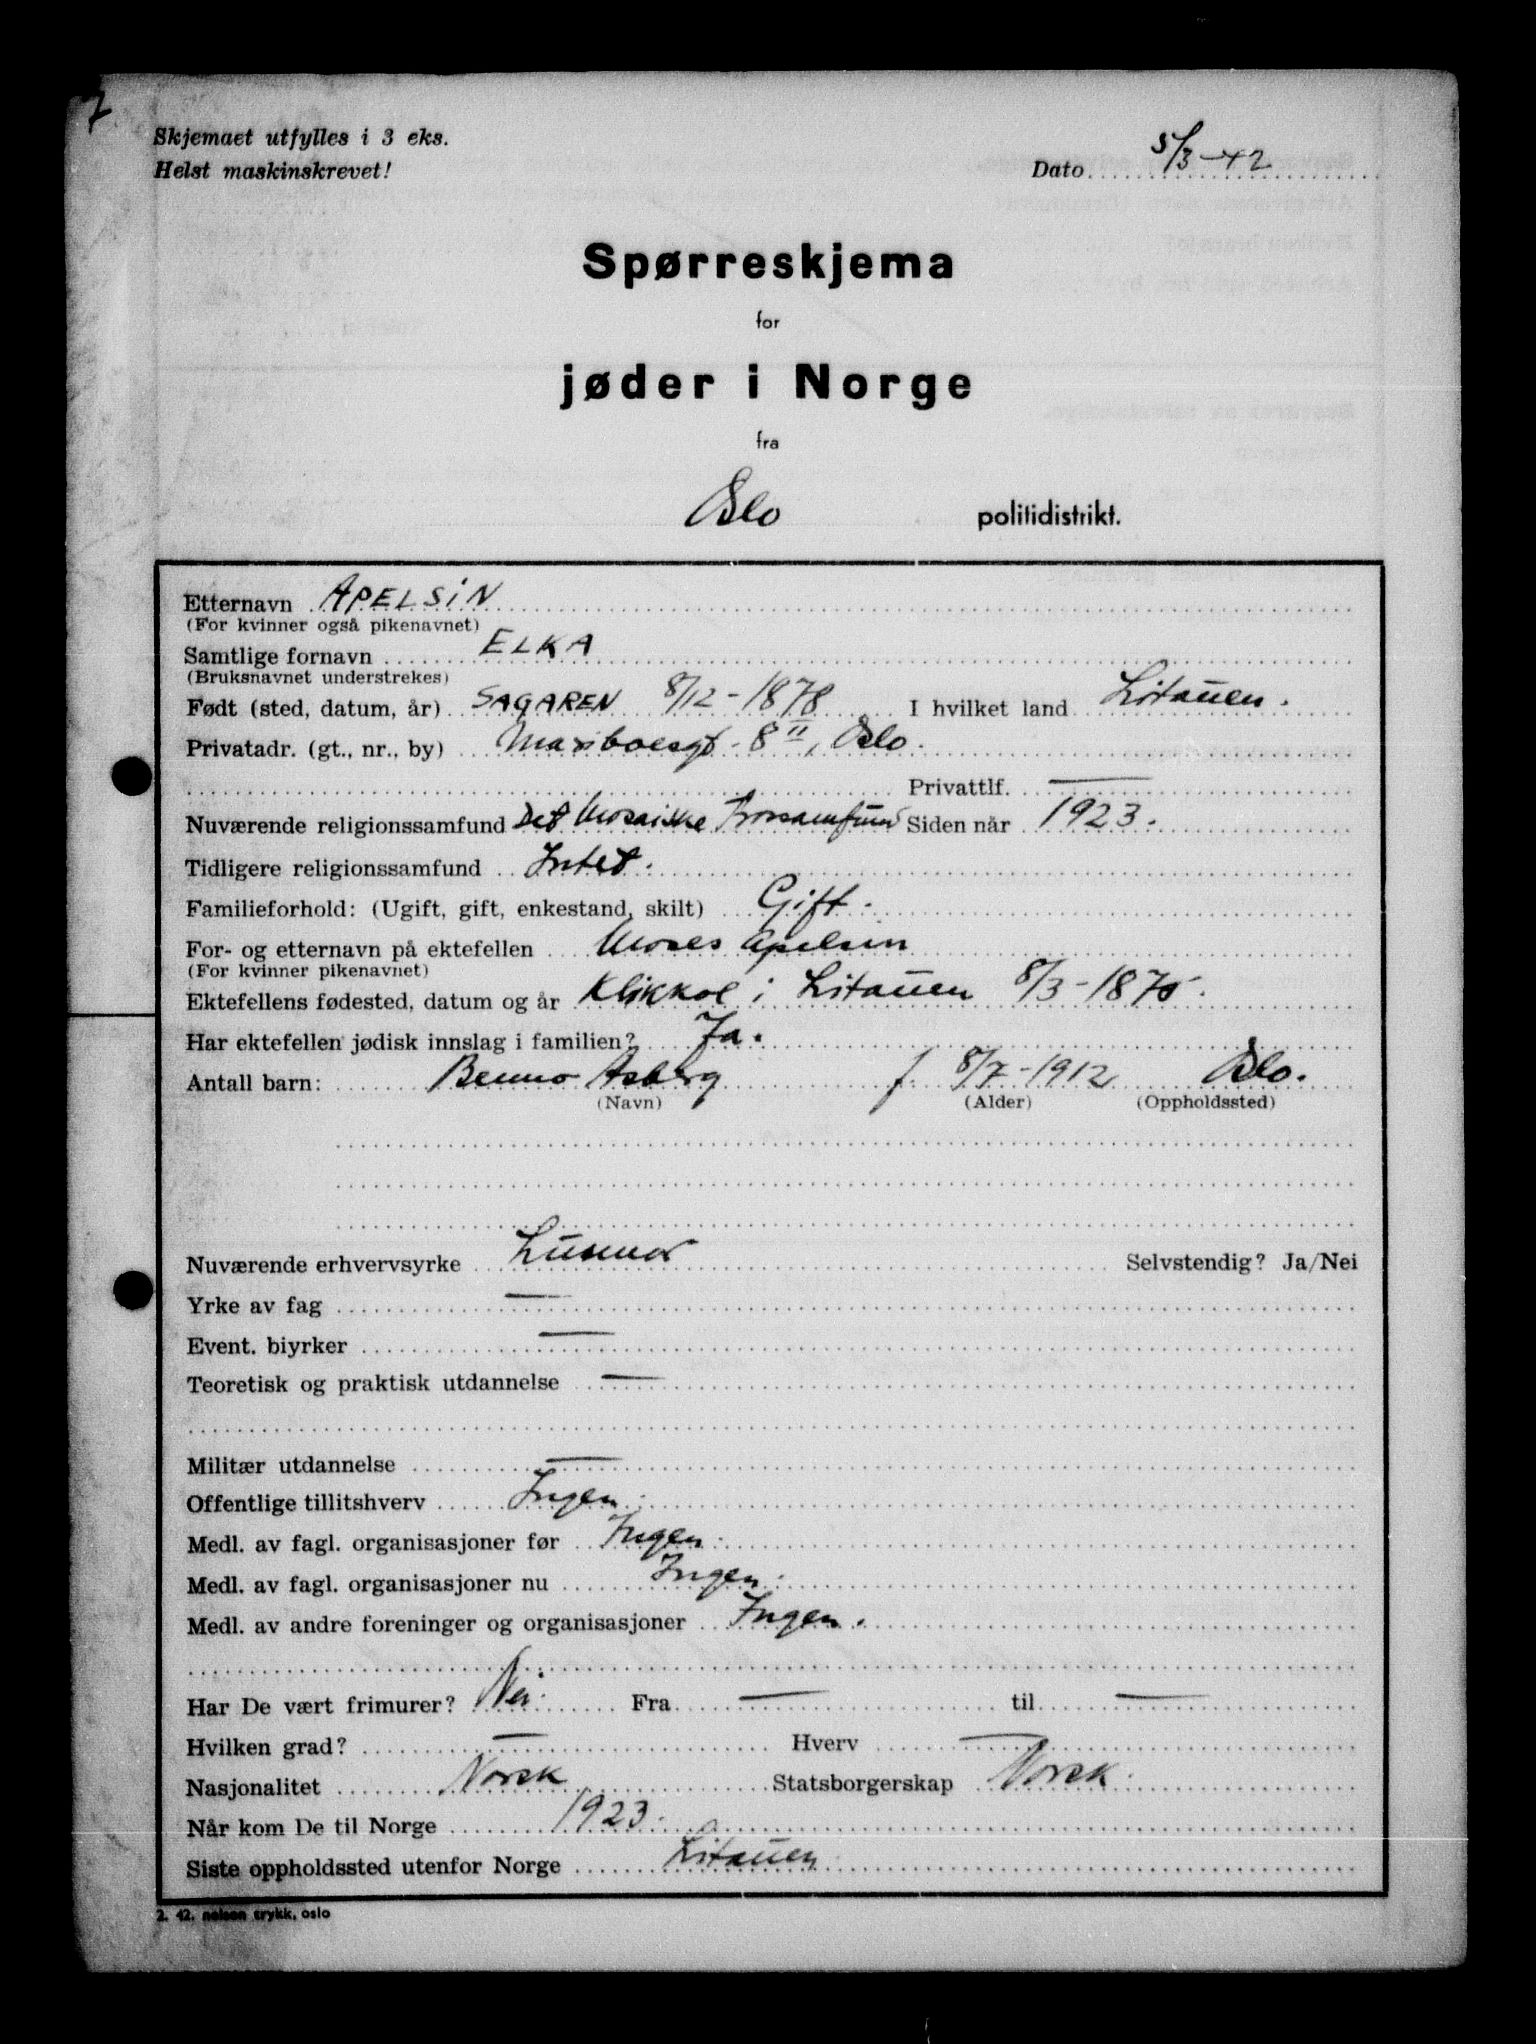 7
Skjemaet utfylles i 3 eks.
Helst maskinskrevet!
Dato 5/3-42
Spørreskjema
for
jøder i Norge
fra
Oslo politidistrikt.
Etternavn APELSIN
(For kvinner også pikenavnet)
Samtlige fornavn ELKA
(Bruksnavnet understrekes)
Født (sted, datum, år) SAGAREN 8/12-1878 I hvilket land Litauen.
Privatadr. (gt., nr., by) Mariboesgt. 8 II, Oslo.
Privattlf. —
Nuværende religionssamfund Det Mosaiske Trossamfund Siden når 1923.
Tidligere religionssamfund Intet.
Familieforhold: (Ugift, gift, enkestand, skilt) Gift.
For- og etternavn på ektefellen Moses Apelsin
(For kvinner pikenavnet)
Ektefellens fødested, datum og år Klikkol i Litauen 8/3-1875.
Har ektefellen jødisk innslag i familien? Ja.
Antall barn: Benno Asberg f. 8/7-1912 Oslo.
(Navn) (Alder) (Oppholdssted)
Nuværende erhvervsyrke Selvstendig? Ja/Nei
Yrke av fag —
Event. biyrker —
Teoretisk og praktisk utdannelse —
Militær utdannelse —
Offentlige tillitshverv Ingen.
Medl. av fagl. organisasjoner før Ingen.
Medl. av fagl. organisasjoner nu Ingen.
Medl. av andre foreninger og organisasjoner Ingen.
Har De vært frimurer? Nei. Fra — til —
Hvilken grad? — Hverv —
Nasjonalitet Norsk Statsborgerskap Norsk.
Når kom De til Norge 1923.
Siste oppholdssted utenfor Norge Litauen
2. 42. nelsen trykk, oslo